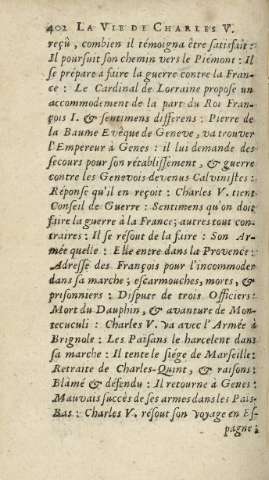 402 LA VIE DE CHARLES V.
reçû, combien il témoigna être satisfait:
Il poursuit son chemin vers le Piémont: Il
se prépare à faire la guerre contre la Fran-
ce: Le Cardinal de Lorraine propose un
accommodement de la part du Roi Fran-
çois I. & sentimens differens: Pierre de
la Baume Evêque de Geneve, va trouver
l'Empereur à Genes: il lui demande des
secours pour son rétablissement, & guerre
contre les Genevois devenus Calvinistes:
Réponse qu'il en reçoit: Charles V. tient
Conseil de Guerre: Sentimens qu'on doit
faire la guerre à la France; autres tout con-
traires: Il se résout de la faire: Son Ar-
mée quelle: Elle entre dans la Provence:
Adresse des François pour l'incommoder
dans sa marche; escarmouches, morts, &
prisonniers: Dispute de trois Officiers:
Mort du Dauphin, & avanture de Mon-
tecuculi: Charles V. va avec l'Armée à
Brignole: Les Païsans le harcelent dans
sa marche: Il tente le siége de Marseille:
Retraite de Charles-Quint, & raisons:
Blâmé & défendu: Il retourne à Genes:
Mauvais succès de ses armes dans les Païs-
Bas: Charles V. résout son voyage en Es-
pagne;